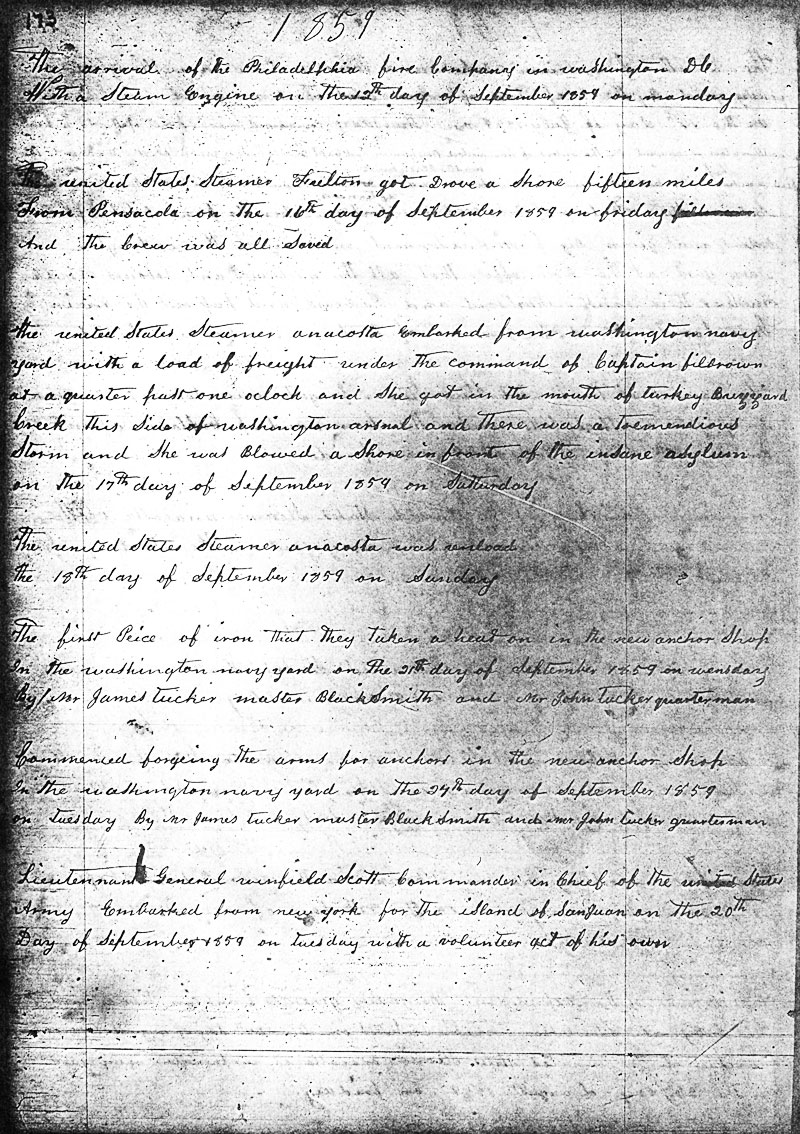 173
1859
The arrival of the Philadelphia fire Company in washington DC
With a Steam Engine on the 12th day of September 1859 on manday
The united States Steamer Fulton got Drove a Shore fifteen miles
From Pensacola on the 16th day of September 1859 on friday
And the Crew was all Saved
the united States Steamer anacosta Embarked from washington navy
yard with a load of freight under the command of Captain filbrown
at a quarter past one oclock and She got in the mouth of turkey Buzzard
Creek this Side of washington arsnal and there was a tremendious
Storm and She was Blowed a Shore in front of the insane asylum
on the 17th day of September 1859 on Satturday
The united States Steamer anacosta was unload
the 18th day of September 1859 on Sunday
The first Peice of iron that they taken a heat on in the new anchor Shop
In the washington navy yard on the 21th day of September 1859 on wensday
By Mr James tucker master BlackSmith and Mr John tucker quarterman
Commenced forgeing the arms for anchors in the new anchor Shop
In the washington navy yard on the 27th day of September 1859
on tuesday By Mr James tucker master BlackSmith and Mr John tucker quarterman
Lieutennant General winfield Scott Commander in Chief of the united States
Army Embarked from new york for the island of SanJuan on the 20th
Day of September 1859 on tuesday with a volunteer act of his own